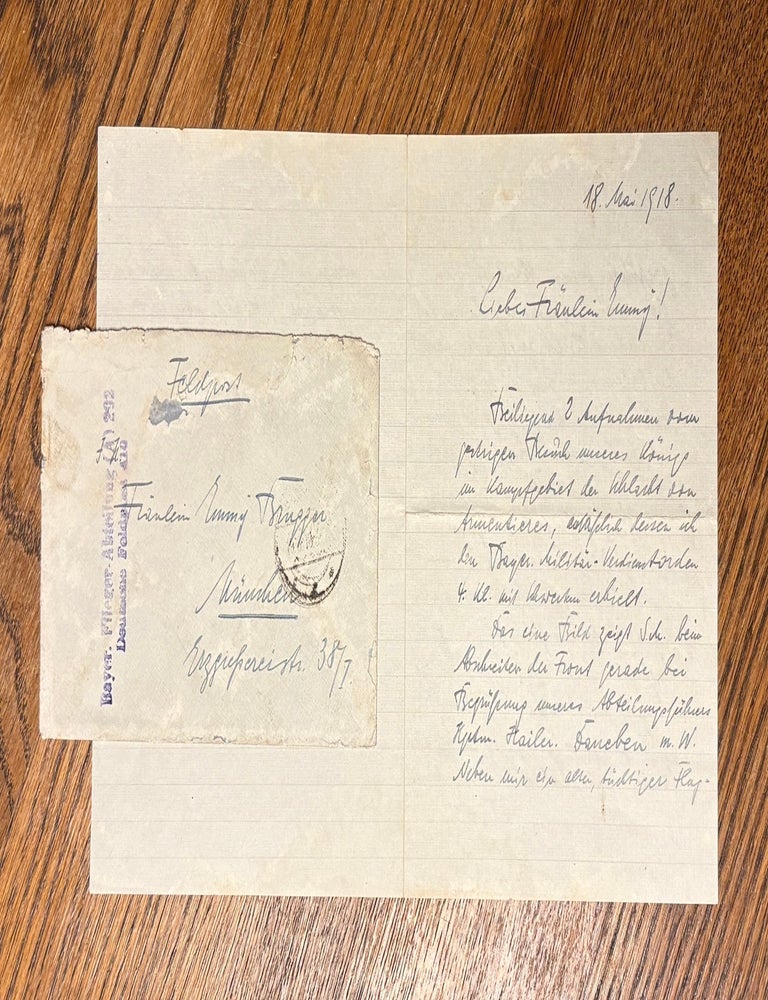 Bayer. Flieger-Abteilung (A) 292
Deutsche Feldpost
Feldpost
Fräulein Emmy Brugger
München
Erzgießereistr. 38/I.
18. Mai 1918.
Liebes Fräulein Emmy!
Beiliegend 2 Aufnahmen vom
gestrigen Besuch unseres Königs
im Kampfgebiet der Schlacht von
Armentieres, anläßlich dessen ich
den Bayer. Militär-Verdienstorden
4. Kl. mit Schwertern erhielt.
Das eine Bild zeigt S.M. beim
Abschreiten der Front gerade bei
Begrüßung unseres Abteilungsführers
Hptm. Hailer. Daneben m. W.
Neben mir ein alter, tüchtiger Flug-